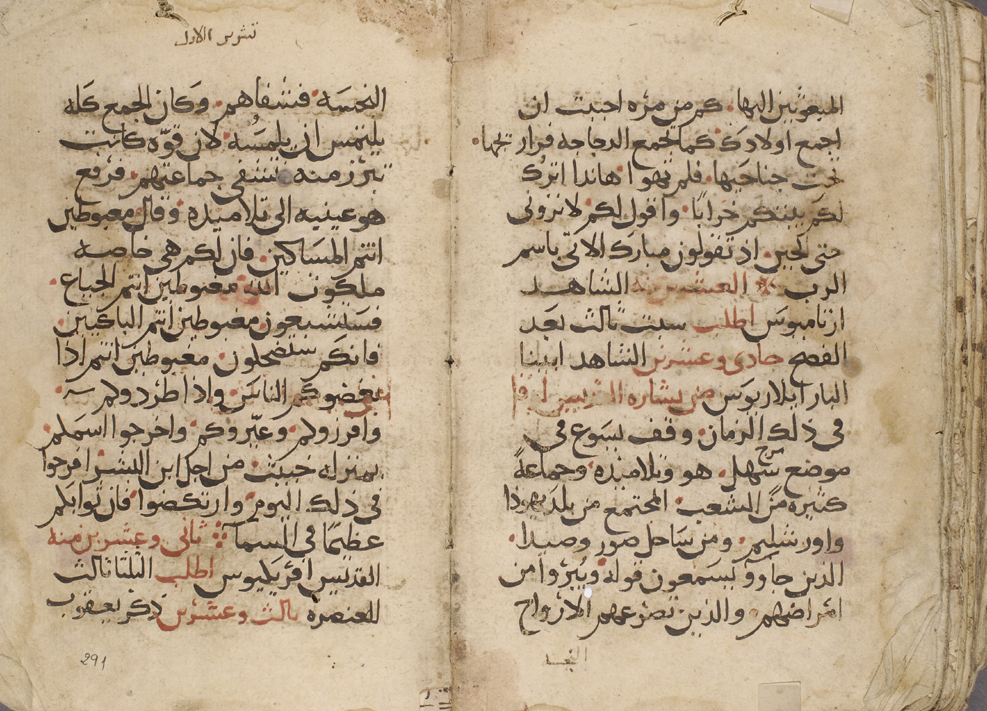 المبعوثين اليها كم من مره احببت ان
اجمع اولادك كما تجمع الدجاجه فرار تحها
تحت جناحيها فلم تهوا هاندا اترك
لكم بيتكم خرابًا واقول لكم لا تروني
حتى لحين اذ تقولون مبارك الاتي باسم
الرب العشرين الشاهد
ارتاميوس اطلب سبت ثالث بعد
الفصح حادى وعشرين الشاهد ابينا
البار ايلاريوس من بشاره
في ذلك الزمان وقف يسوع في
موضع سهل هو وتلاميذه وجماعةً
كثيره من الشعب المجتمع من بلد يهوذا
واورشليم ومن ساحل صور وصيدا
الدين جاووا يسمعون قوله ويبروا من
امراضهم والذين تصرعهم الارواح
النجـ
تشرين الاول
النجسه فشفاهم وكان الجمع كله
يلتمس ان يلمسُه لان قوّه كانت
تبرز منه تشفى جماعتهم فرفع
هو عينيه الى تلاميده وقال مغبوطين
انتم المساكين فان لكم هى خاصه
ملكوت الله مغبوطين انتم الجياع
فستشبعون مغبوطين انتم الباكيين
فانكم ستضحلون مغبوطين انتم اذا
بغضوكم الناس واذا طردولم
وافرزولم وعيّروكم واخرجوا اسملم
بمنزله خبيث من اجل ابن البشر افرحوا
في ذلك اليوم وارتكضوا فان ثوابلم
عظيمًا في السما ثانى وعشرين منه
القديس افريليوس اطلب الثلثا ثالث
للعنصرة ثالث وعشرين ذكر يعقوب
291